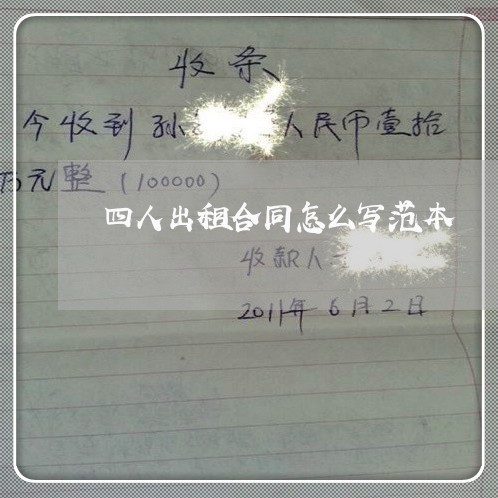 收条
今收到孙 人民币壹拾
万元整(100000)
四人出租合同怎么写范本
收款人
2011年6月2日